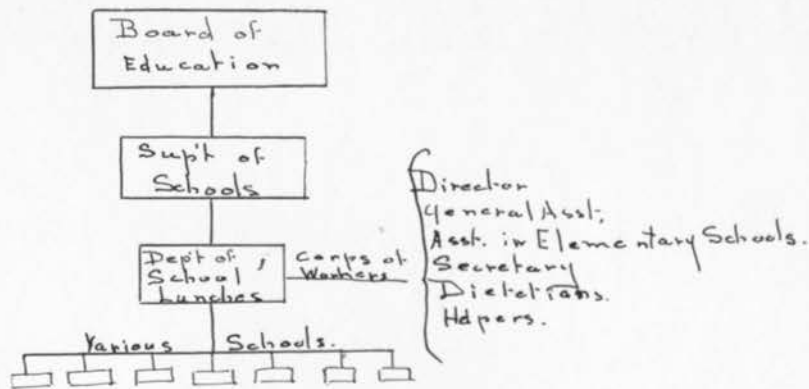 Board of
Education
Sup't of
Schools
Dep't of
School
Lunches
Corps of
Workers
Director
General Asst.
Asst. in Elementary Schools.
Secretary
Dietetians.
Helpers.
Various Schools.